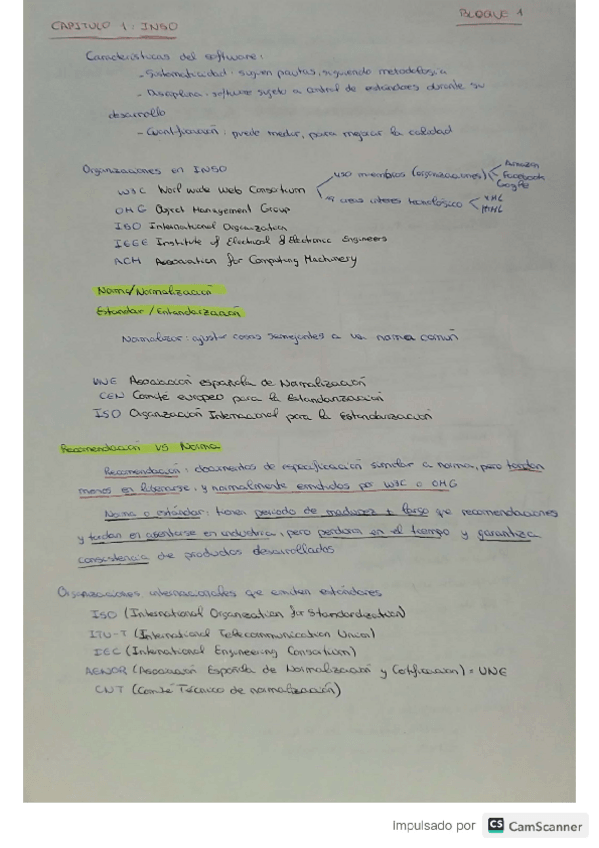 BLOQUE 1
CAPITULO 1: INSO
Características del software:
- Sistematicidad: siguen pautas, siguiendo metodología
- Disciplina: software sujeto a control de estándares durante su
desarrollo
- Cuantificación: puede medir, para mejorar la calidad
Organizaciones en INSO
W3C Worl wide Web Consortium
450 miembros (organizaciones)
Amazon
Facebook
Google
areas interes tecnológico
XML
HTML
OMG Object Management Group
ISO International Organization
IEEE Institute of Electrical & Electronic Engineers
ACM Association for Computing Machinery
Norma/Normalización
Estandar/Estandarización
Normalizar: ajustar cosas semejantes a una norma común
UNE Asociación española de Normalización
CEN Comité europeo para la Estandarización
ISO Organización Internacional para la Estandarización
Recomendación vs Norma
Recomendación: documentos de especificación similar a norma, pero tardan
menos en liberarse, y normalmente emitidos por W3C o OMG
Norma o estándar: tienen periodo de madurez + largo que recomendaciones
y tardan en asentarse en industria, pero perdura en el tiempo y garantiza
consistencia de productos desarrollados
Organizaciones internacionales que emiten estándares
ISO (International Organization for Standardization)
ITU-T (International Telecommunication Union)
IEC (International Engineering Consortium)
AENOR (Asociación Española de Normalización y Certificación) = UNE
CNT (Comité Técnico de normalización)
Impulsado por CS CamScanner